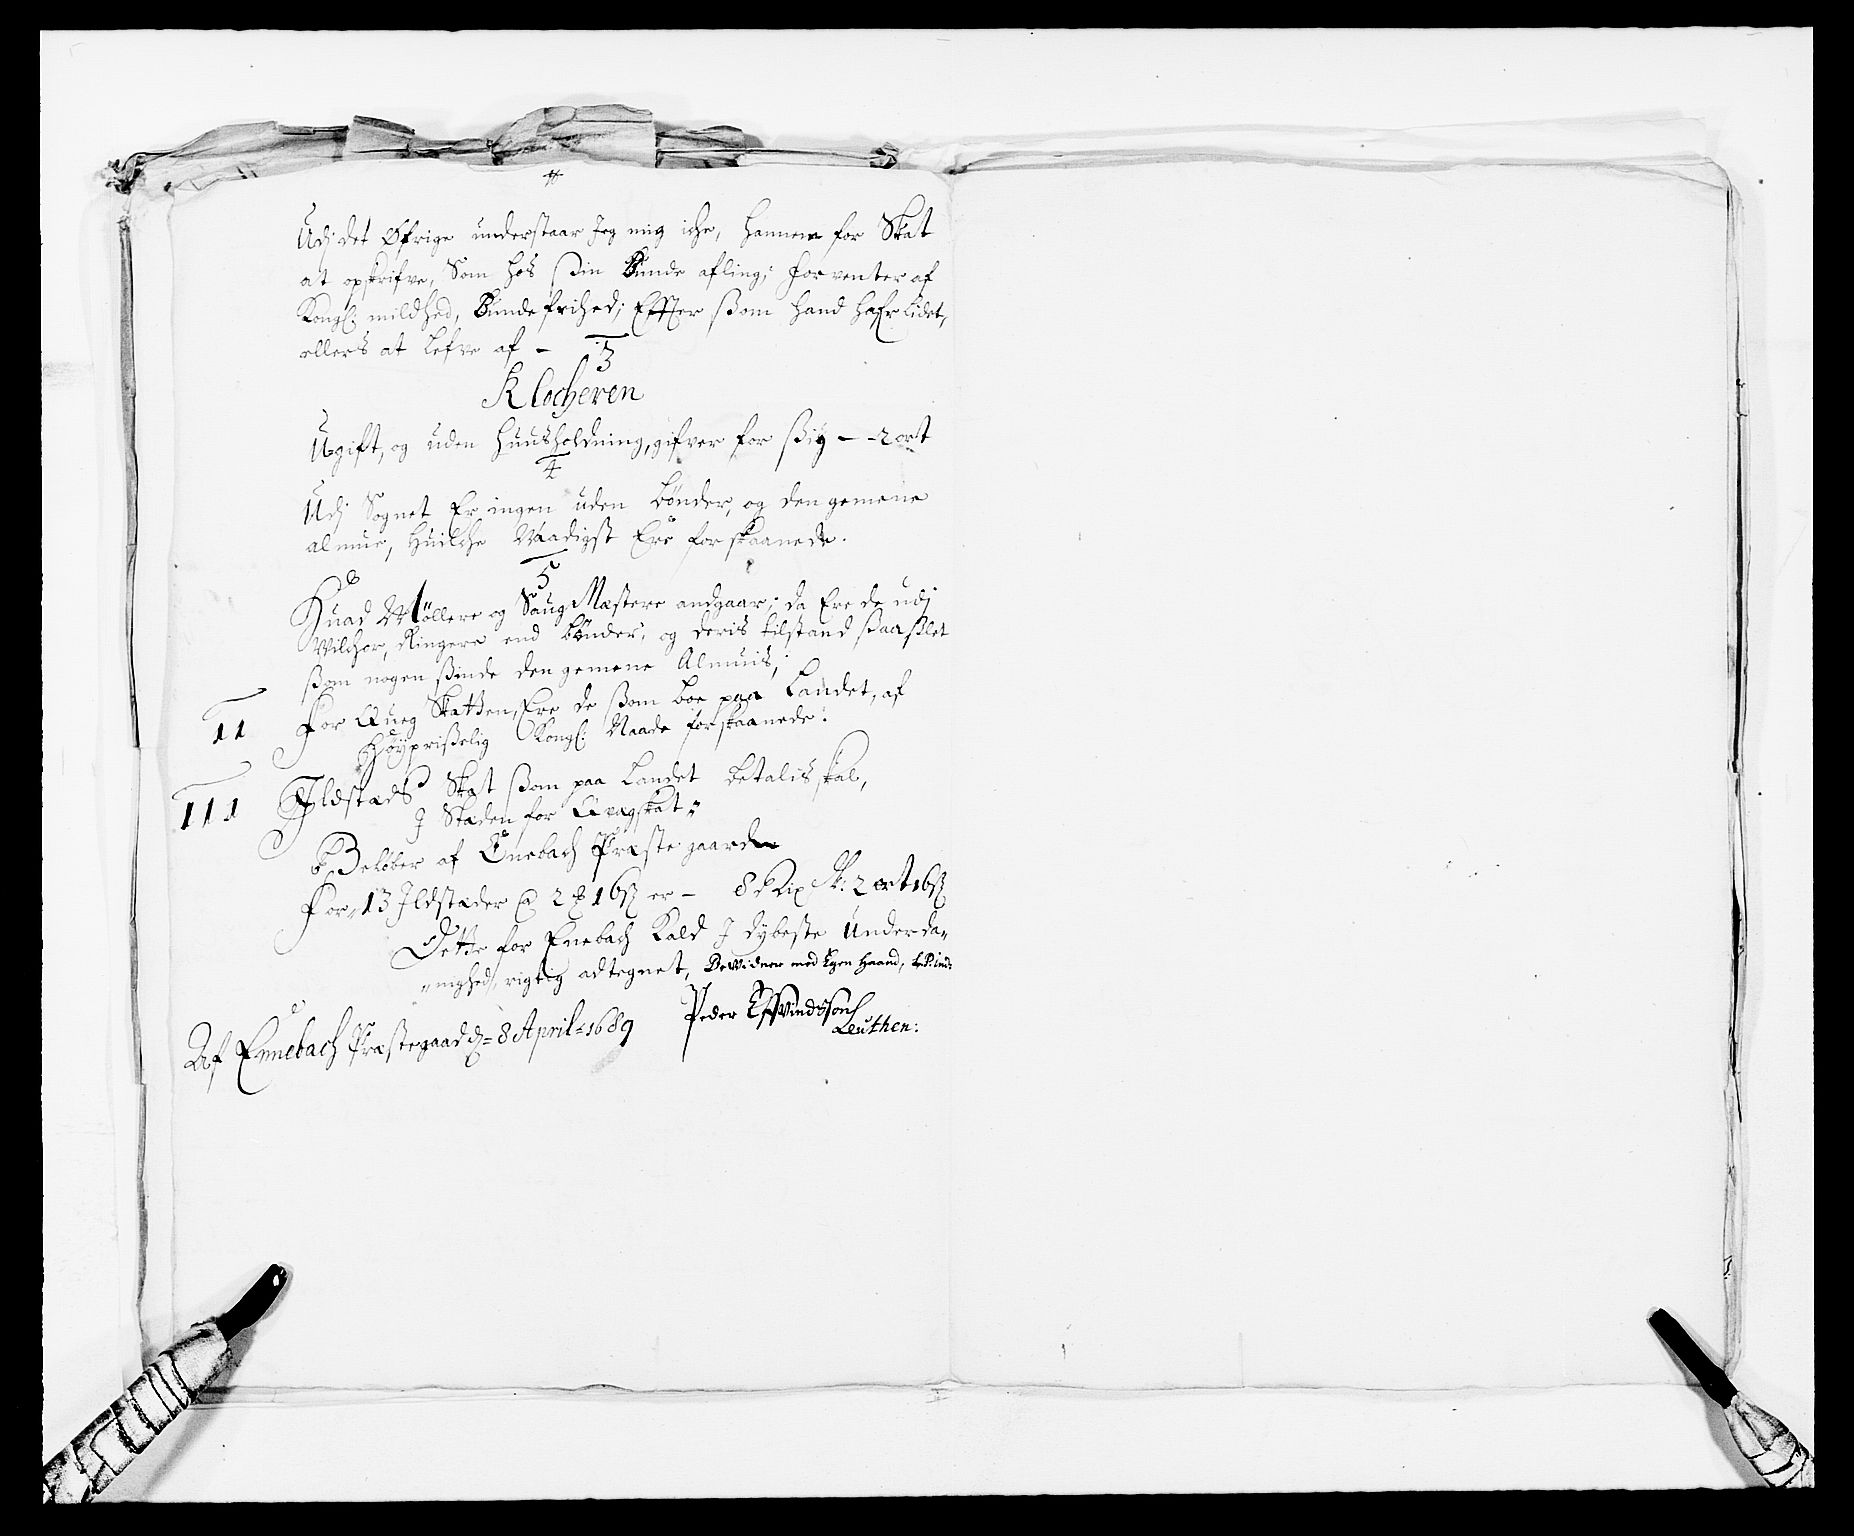 Udj det Øfrige understaar Jeg mig iche, hannem for Skat
at opskrifve, Som hos ßin Bunde afling; forventer af
Kongl: mildhed, Bunde frihed; Effter ßom hand hafr lidet,
ellers at lefve af -
3
Klocheren
Ugift, og uden huusholdning, gifver for ßig - 2 ort
4
Udj Sognet Er ingen uden bønder, og den gemene
almue, huilche Naadigst Ere forskaanede.
5
Huad Møllere og Saug Mestere andgaar; da Ere de udj
Vilchor, Ringere end bønder, og deris tilstand ßaa ßlet
ßom nogen ßinde den gemene Almuis;
11 For Queg Skatten, Ere de ßom boe paa Landet, af
Høyprißelig Kongl: Naade forskaanede:
111 Ildsteds Skat ßom paa Landet betalis skal,
J Steden for Qvegskat
Beløber af Enebach Præste gaard
For 13 Ildstæder a 2 16ß er - 8 Rix dlr: 2 ort 16ß
Dette for Enebach Kald J dybeste Underda-
-nighed, rigtig adtegnet, Bewidner med Egen Haand,
Peder Effvindsson
Leuthen:
Af Ennebach Præstegaard d. 8 April 1689